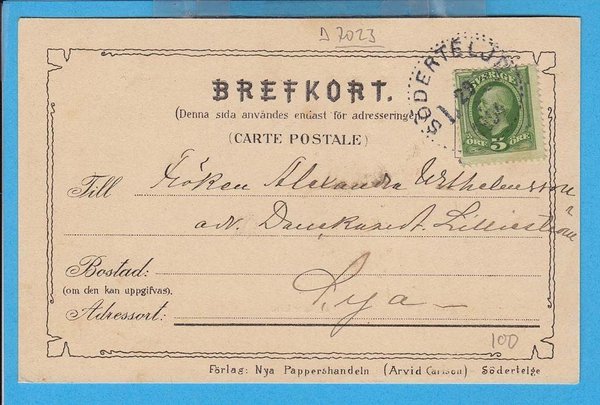 D 7023
BREFKORT.
(Denna sida användes endast för adresseringen
(CARTE POSTALE)
SÖDERTELJE
SVERIGE
ÖRE 5 ÖRE
Till Fröken Alexandra
adr.
Bostad:
(om den kan uppgifvas).
Adressort:
100
Förlag: Nya Pappershandeln (Arvid Carlson) – Södertelge